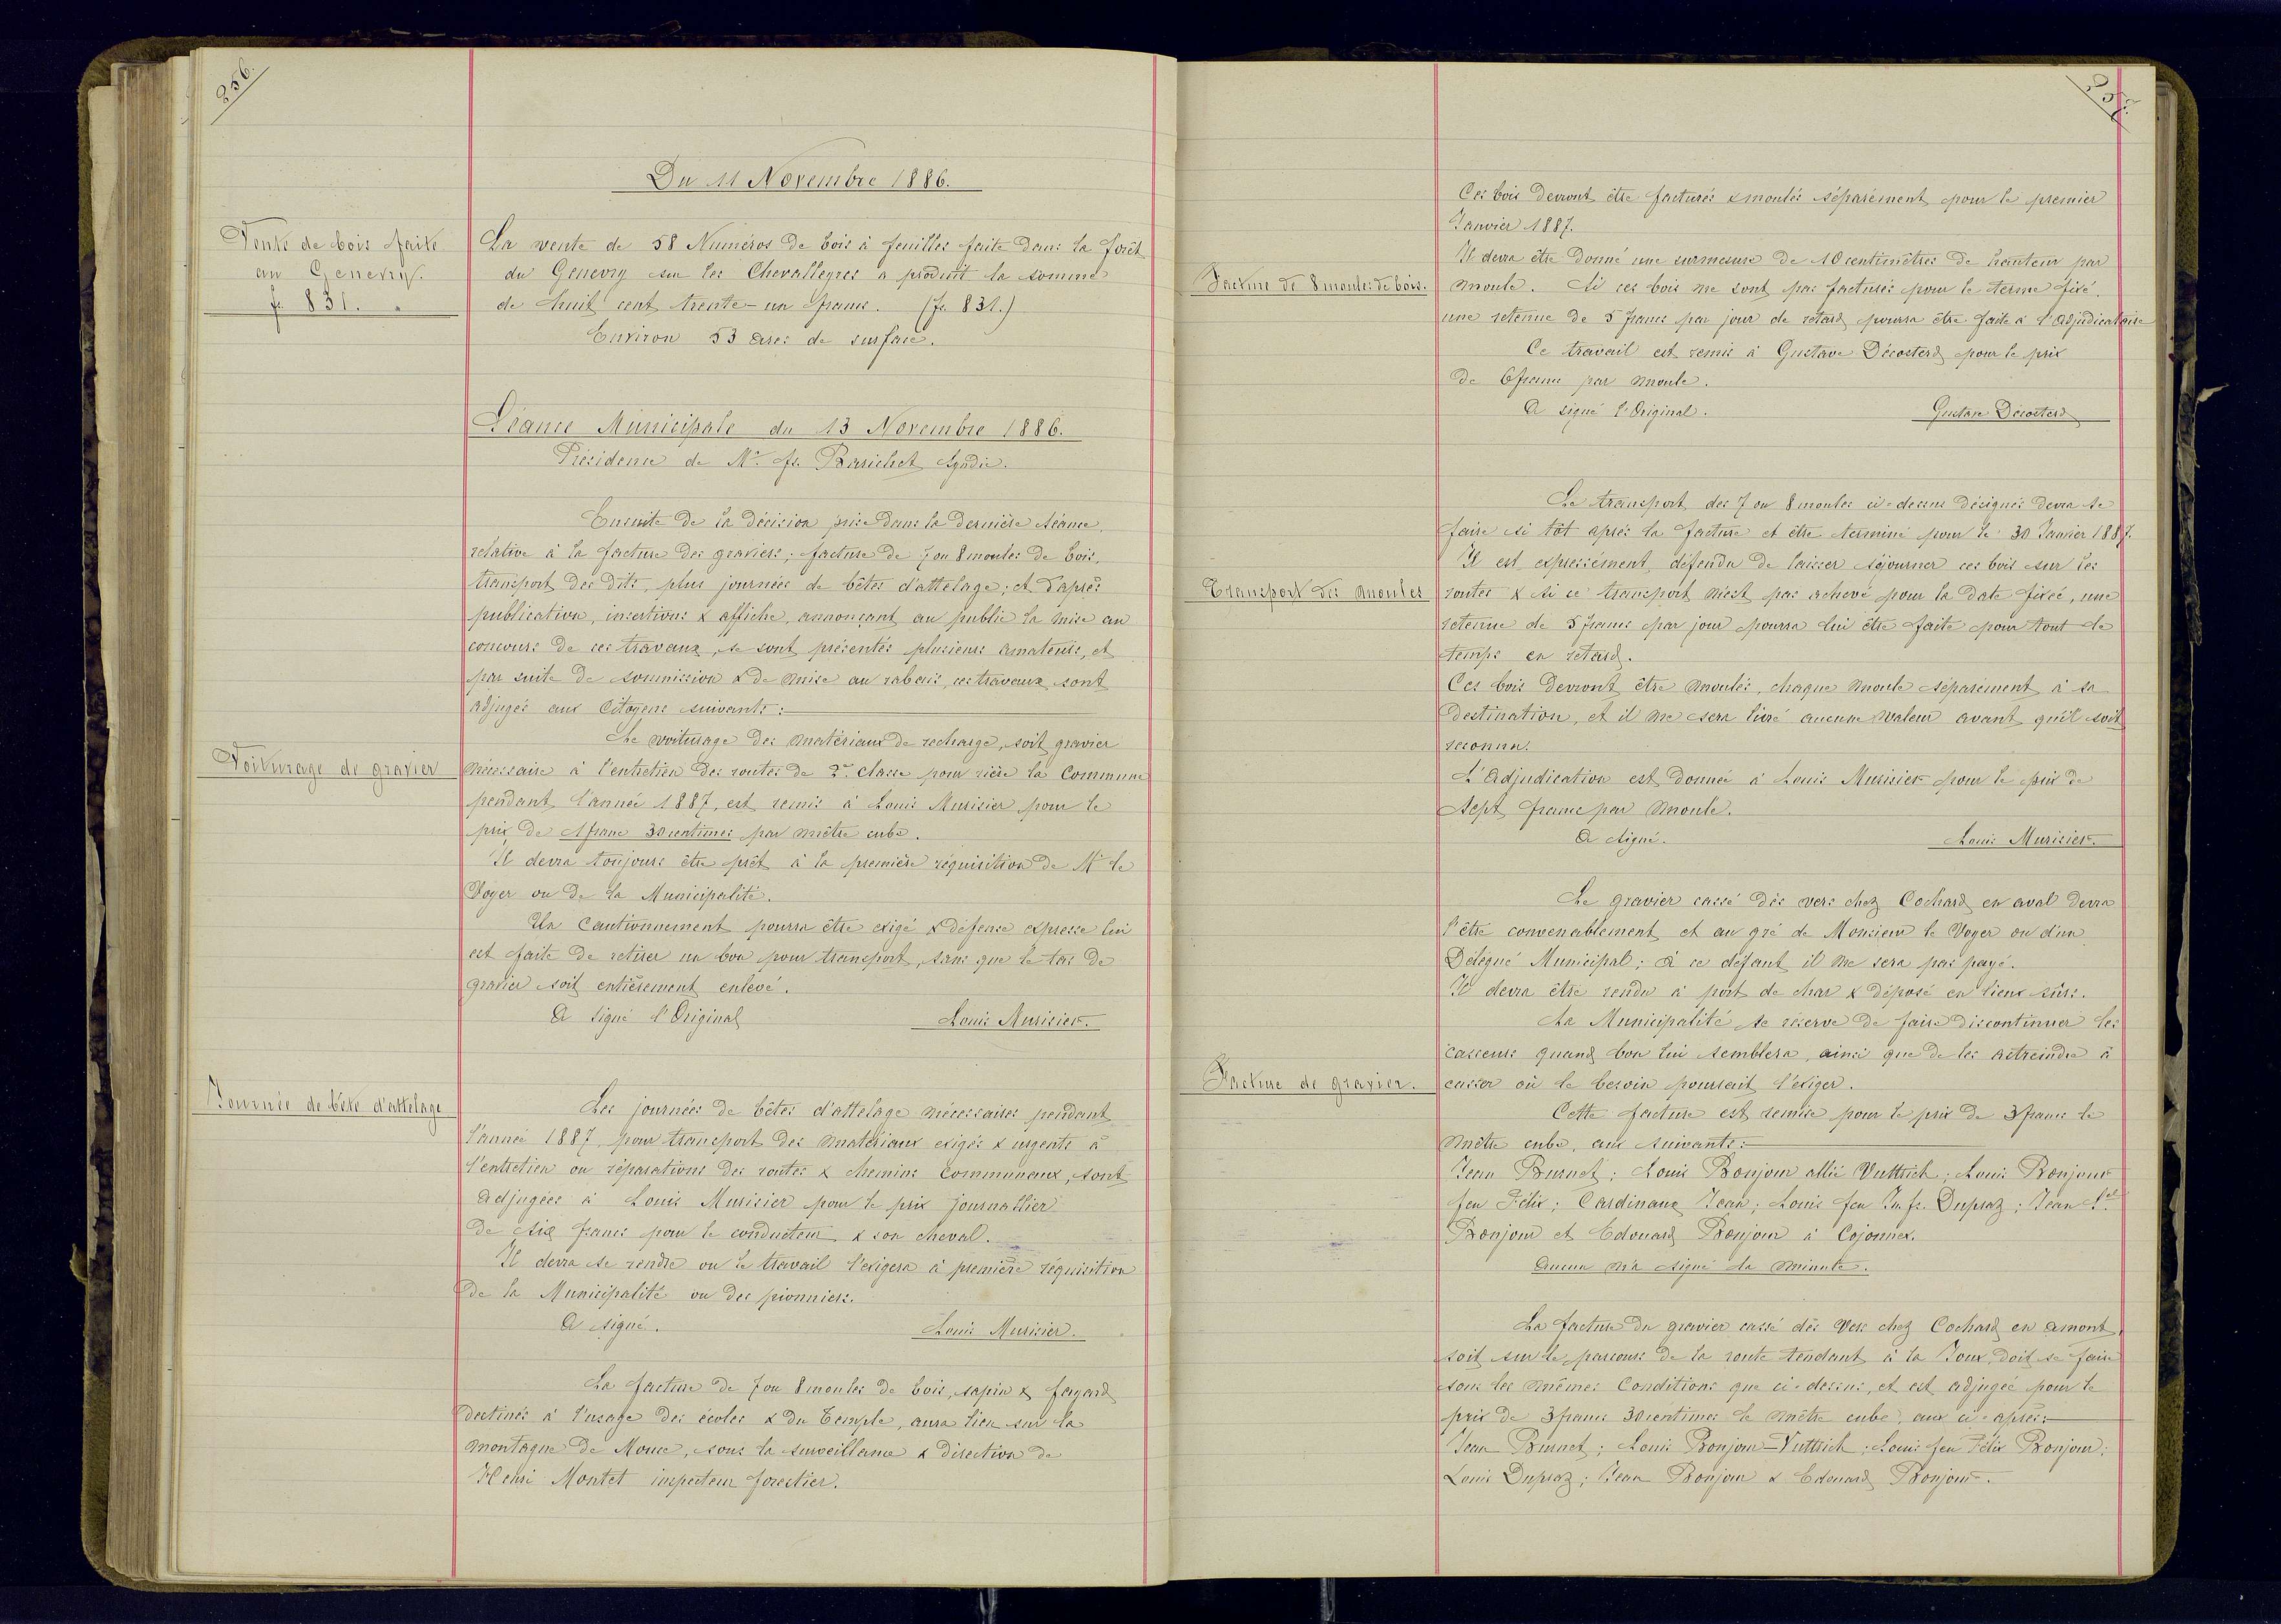 256.
Du 11 Novembre 1886.
Vente de bois faite
au Genevry.
fr. 831. "
La vente de 58 Numéros de bois à feuilles faite dans la forêt
du Genevry sur les Chevalleyres a produit la somme
de huit cent trente-un francs. (fr. 831.)
Environ 53 ares de surface.
Séance Municipale du 13 Novembre 1886.
Présidence de Mr. fs. Barichet Syndic.
Ensuite de la décision prise dans la dernière séance,
relative à la facture des graviers; facture de 7 ou 8 moules de bois,
transport des dits, plus journées de bêtes d'attelage; et d'après
publication, insertions & affiche, annonçant au public la mise au
concours de ces travaux, se sont présentés plusieurs amateurs, et
par suite de soumission & de mise au rabais, ces travaux sont
adjugés aux Citoyens suivants:
Voiturage de gravier
Le voiturage des matériaux de recharge, soit gravier
nécessaire à l'entretien des routes de 2me classe pour rière la Commune
pendant l'année 1887, est remis à Louis Murisier pour le
prix de 1 franc 30 centimes par mêtre cube.
Il devra toujours être prêt à la première réquisition de Mr le
Voyer ou de la Municipalité.
Un Cautionnement pourra être exigé & défense expresse lui
est faite de retirer un bon pour transport, sans que le tas de
gravier soit entièrement enlevé.
A signé l'Original
Louis Murisier.
Journée de bête d'attelage
Les journées de bêtes d'attelage nécessaires pendant
l'année 1887, pour transport des matériaux exigés & urgents à
l'entretien ou réparations des routes & chemins communaux, sont
adjugées à Louis Murisier pour le prix journallier
de six francs pour le conducteur & son cheval.
Il devra se rendre ou le travail l'exigera à première réquisition
de la Municipalité ou des pionniers.
A signé.
Louis Murisier.
La facture de 7 ou 8 moules de bois, sapin & fayard
destinés à l'usage des écoles & du Temple, aura lieu sur la
montagne de Mouce, sous la surveillance & direction de
Henri Montet inspecteur forestier.
257.
Ces bois devront être facturés & moulés séparément pour le premier
Janvier 1887.
Facture de 8 moules de bois.
Il devra être donné une surmesure de 10 centimêtres de hauteur par
moule. Si ces bois ne sont pas facturés pour le terme fixé,
une retenue de 5 francs par jour de retard pourra être faite à l'adjudicataire
Ce travail est remis à Gustave Décosterd pour le prix
de 6 francs par moule.
A signé l'Original.
Gustave Décosterd
Le transport des 7 ou 8 moules ci-dessus désignés devra se
faire si tôt après la facture et être terminé pour le 30 Janvier 1887.
Transport des moules
Il est expressément défendu de laisser séjourner ces bois sur les
routes & si ce transport n'est pas achevé pour la date fixée, une
retenue de 5 francs par jour pourra lui être faite pour tout le
temps en retard.
Ces bois devront être moulés, chaque moule séparément à sa
destination, et il ne sera livré aucune valeur avant qu'il soit
reconnu.
L'adjudication est donnée à Louis Murisier pour le prix de
Sept francs par moule.
A signé.
Louis Murisier.
Le gravier cassé dès vers chez Cochard en aval devra
l'être convenablement et au gré de Monsieur le Voyer ou d'un
Délégué Municipal; à ce défaut il ne sera pas payé.
Il devra être rendu à port de char & déposé en lieux sûrs.
Facture de gravier.
La Municipalité se réserve de faire discontinuer les
casseurs quand bon lui semblera, ainsi que de les astreindre à
casser où le besoin pourrait l'exiger.
Cette facture est remise pour le prix de 3 francs le
mêtre cube, aux suivants:
Jean Burnet; Louis Bonjour allié Vuttrich; Louis Bonjour
feu Félix; Cardinaux Jean; Louis feu Jn. fs. Dupraz; Jean Sl
Bonjour et Edouard Bonjour à Cojonnex.
Aucun n'a signé la minute.
La facture du gravier cassé dès Vers chez Cochard en amont,
soit sur le parcours de la route tendant à la Joux, doit se faire
sous les mêmes Conditions que ci-dessus, et est adjugée pour le
prix de 3 francs 30 centimes le mêtre cube, aux ci-après:
Jean Burnet; Louis Bonjour-Vuttrich; Louis feu Félix Bonjour;
Louis Dupraz; Jean Bonjour & Edouard Bonjour.